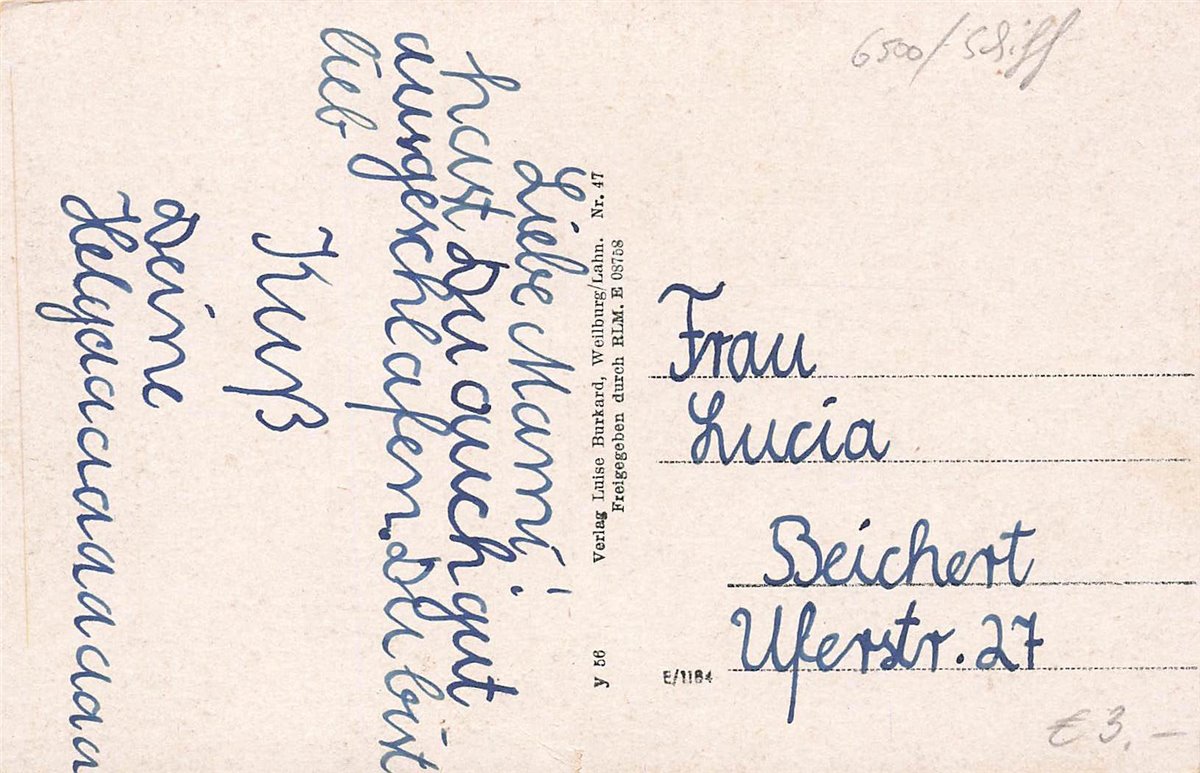 Liebe Mami!
hast Du auch gut
ausgeschlafen. Du bist
lieb
Kuß
Deine
Helgaaaaaaaaaa
Verlag Luise Burkard, Weilburg/Lahn. Nr. 47
Freigegeben durch RLM. E 08758
y 56
6500/Schiff
Frau
Lucia
Beichert
Uferstr. 27
E/1184
€ 3,-